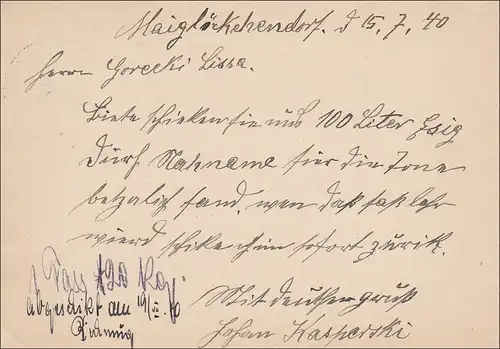 Maiglöckchendorf. d 15.7.40
Herrn Gorecki Lissa.
Biete schicken sie uns 100 Liter Esig
Durch Nahname für die Tone
betzalich fand, wen daß faß lehr
wierd schike ich im sofort zurik.
Mit deutschen gruß
Johan Kasperski
abgeschikt am 19/VII. 40